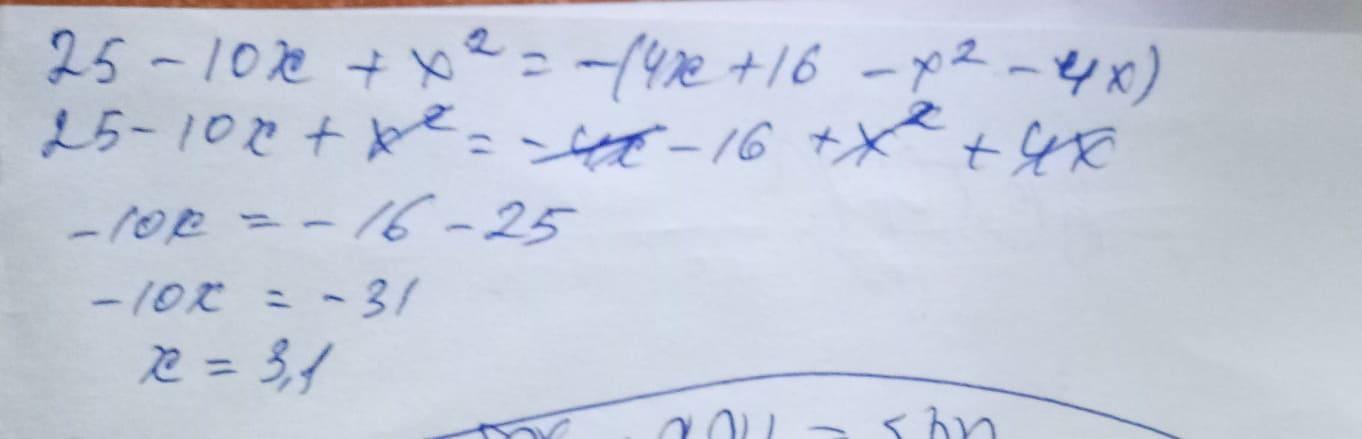 25 - 10x + x² = -(4x + 16 - x² - 4x)
25 - 10x + x² = -4x - 16 + x² + 4x
-10x = -16 - 25
-10x = -31
x = 3,1